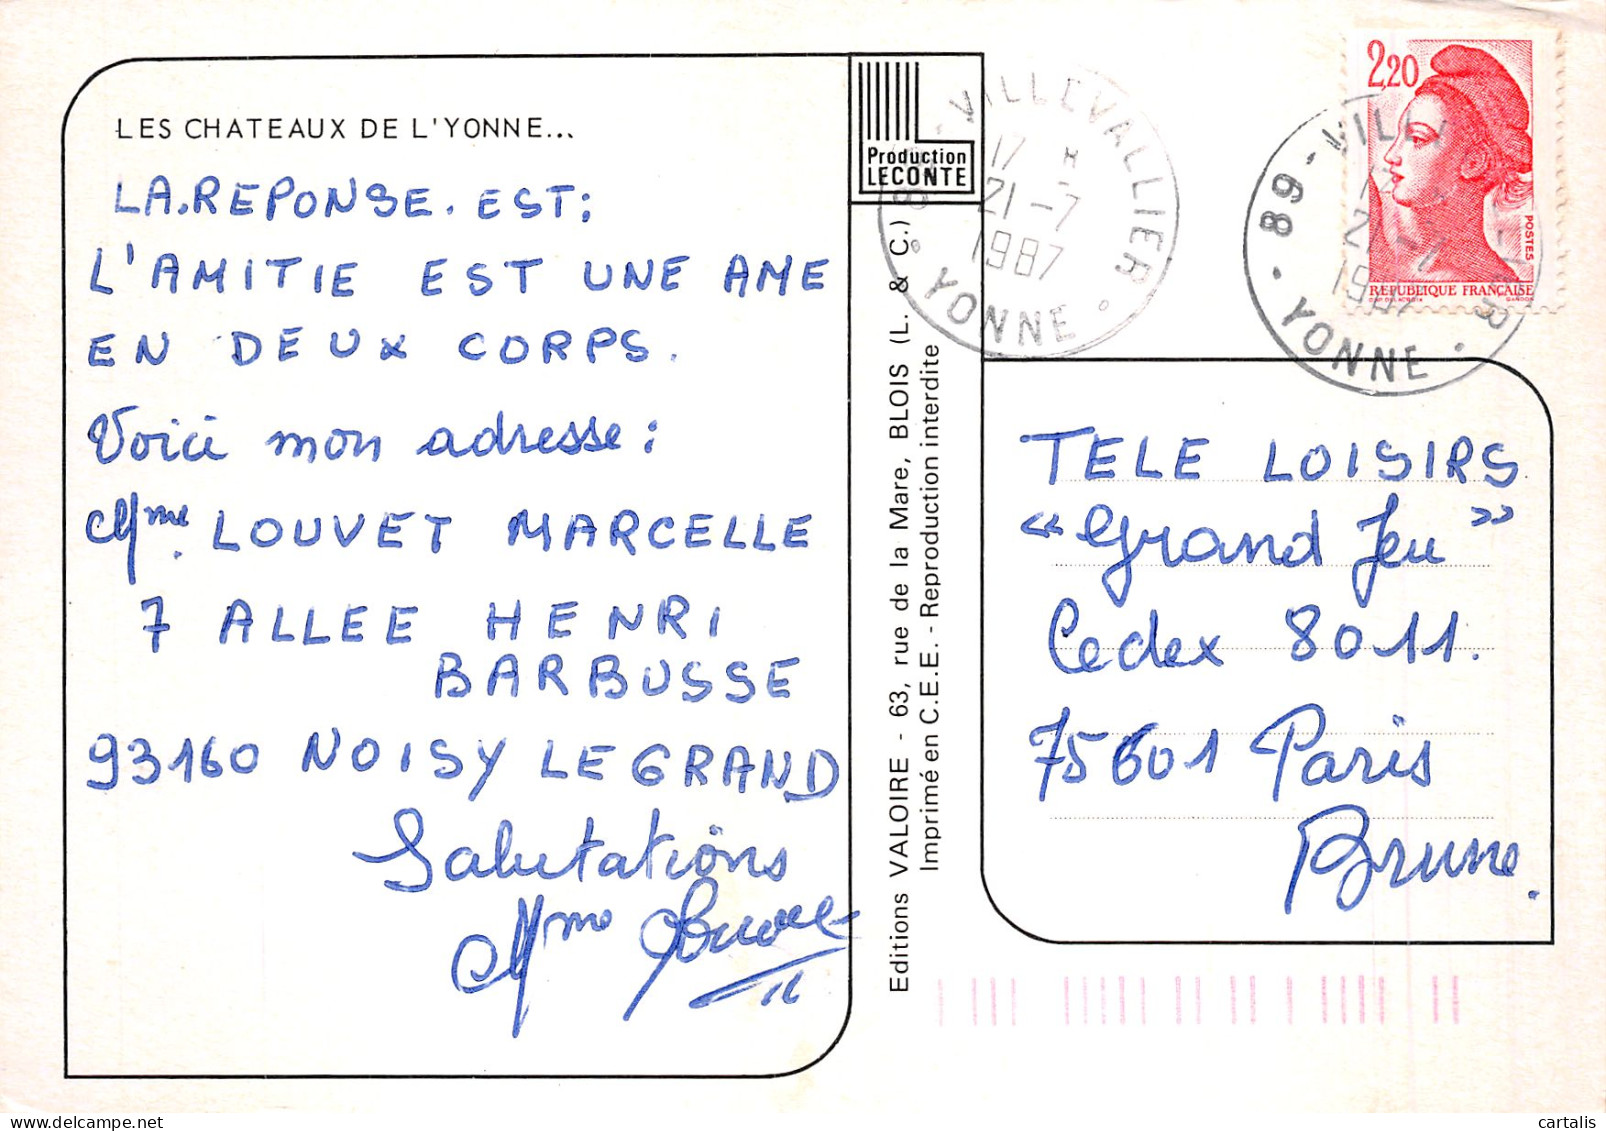 LES CHATEAUX DE L'YONNE...
LA.REPONSE.EST;
L'AMITIE EST UNE AME
EN DEUX CORPS.
Voici mon adresse:
Mme. LOUVET MARCELLE
7 ALLEE HENRI
BARBUSSE
93160 NOISY LE GRAND
Salutations
Mme
Production
LECONTE
Editions VALOIRE - 63, rue de la Mare, BLOIS (L. & C.)
Imprimé en C.E.E. - Reproduction interdite
89 - VILLEVALLIER
17 H
21-7
1987
YONNE
2,20
POSTES
REPUBLIQUE FRANÇAISE
GANDON
89 - VILL
YONNE
TELE LOISIRS
"Grand Jeu"
Cedex 8011.
75601 Paris
Brune.
cartalis